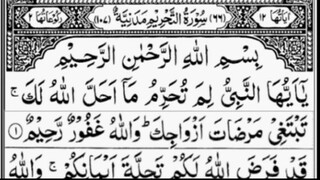 اٰيَاتُهَا ١٢ (٦٦) سُوْرَةُ التَّحْرِيْمِ مَدَنِيَّةٌ (١٠٧) رُكُوْعَاتُهَا ٢
بِسْمِ اللّٰهِ الرَّحْمٰنِ الرَّحِيْمِ
يٰۤاَيُّهَا النَّبِيُّ لِمَ تُحَرِّمُ مَاۤ اَحَلَّ اللّٰهُ لَكَ ۚ
تَبْتَغِيْ مَرْضَاتَ اَزْوَاجِكَ ؕ وَاللّٰهُ غَفُوْرٌ رَّحِيْمٌ ﴿١﴾
قَدْ فَرَضَ اللّٰهُ لَكُمْ تَحِلَّةَ اَيْمَانِكُمْ ۚ وَاللّٰهُ